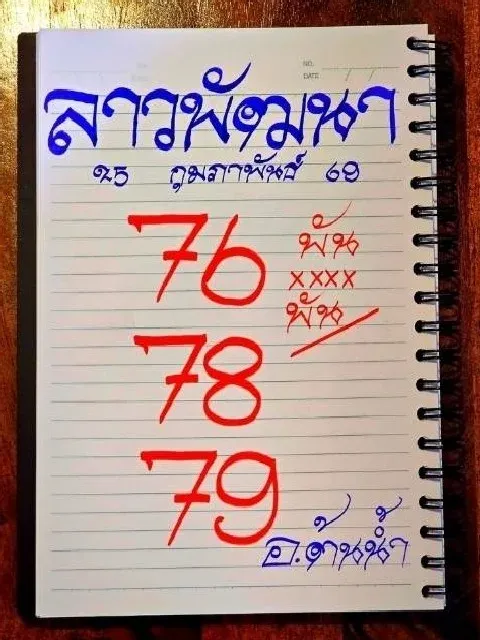 NO.
DATE / /
ลาวพัฒนา
๒๕ กุมภาพันธ์ ๖๙
76 พัน
xxxx
พัน
78
79
อ.ต้นน้ำ